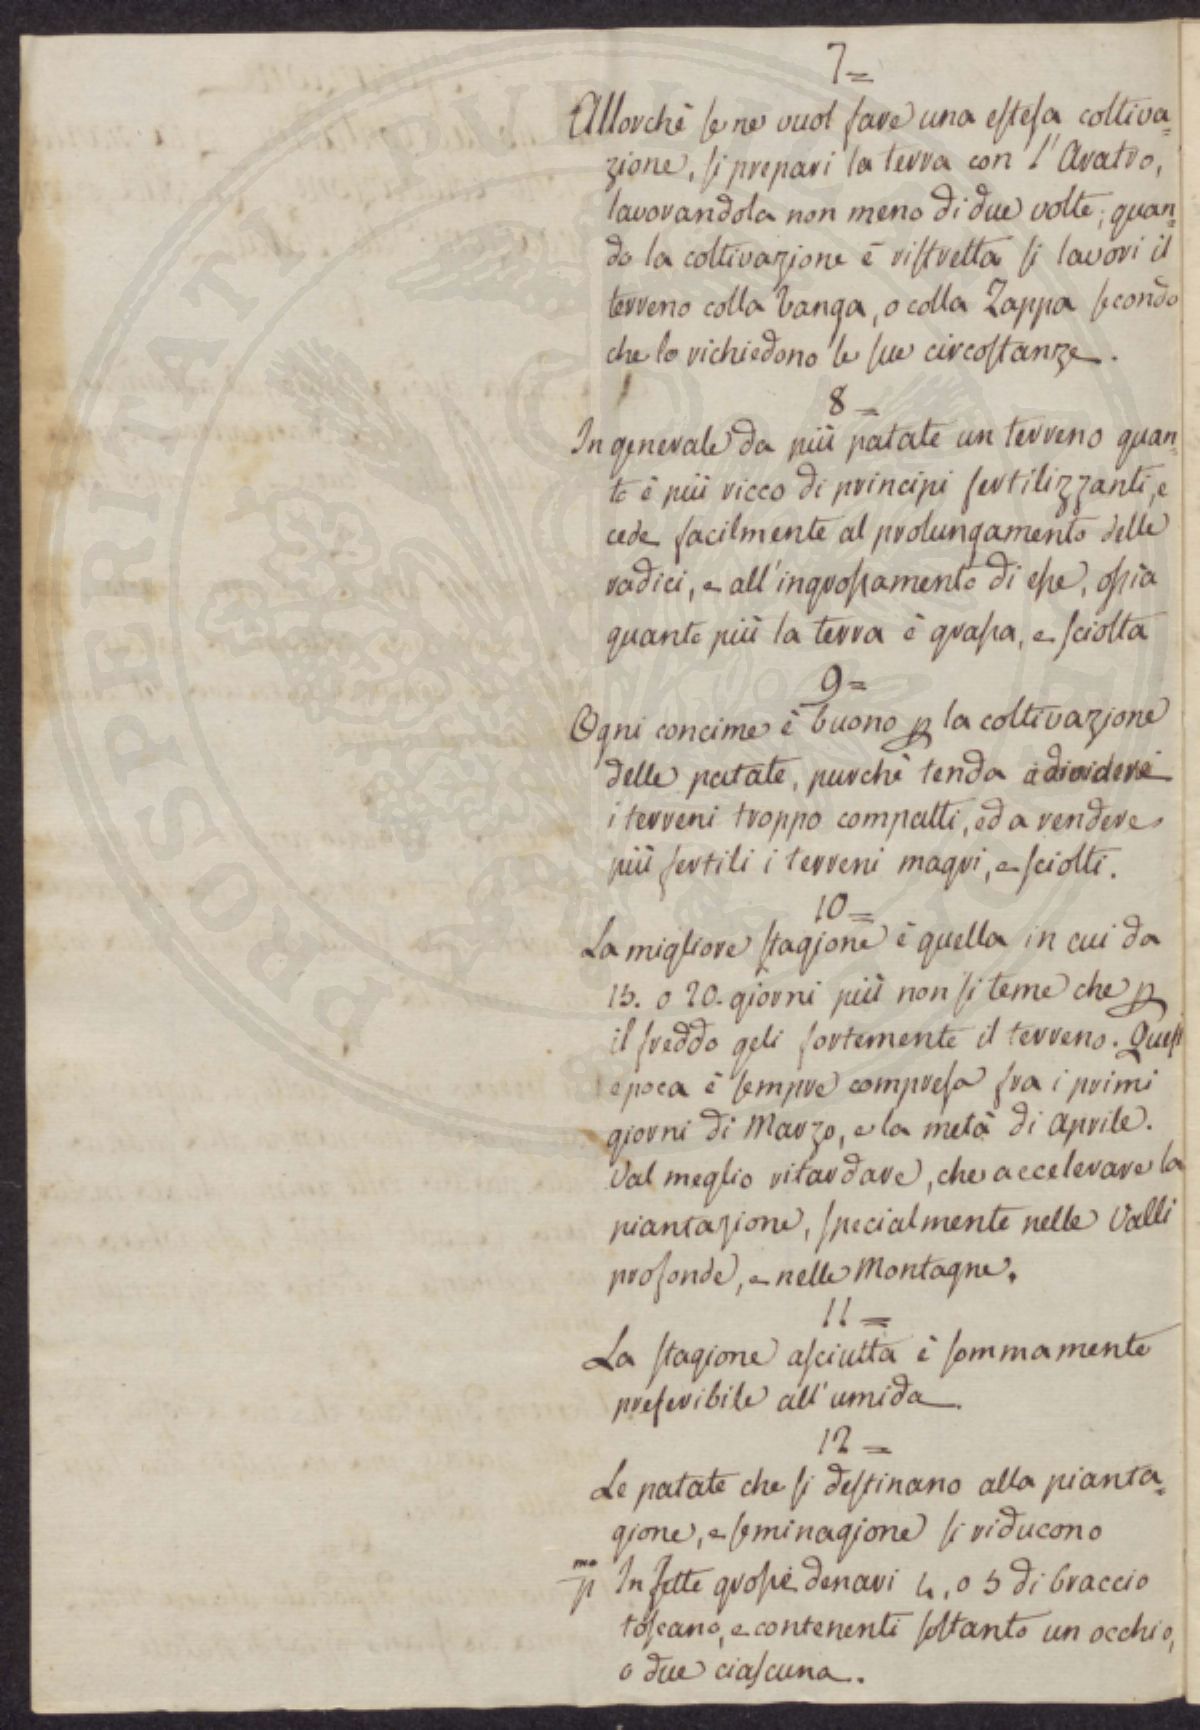 7=
Allorchè se ne vuol fare una estesa coltiva=
zione, si prepari la terra con l'Aratro,
lavorandola non meno di due volte; quan=
do la coltivazione è ristretta si lavori il
terreno colla Vanga, o colla Zappa secondo
che lo richiedono le sue circostanze.
8=
In generale da più patate un terreno quan=
to è più ricco di principj fertilizzanti, e
cede facilmente al prolungamento delle
radici, e all'ingrossamento di esse, ossia
quanto più la terra è grassa, e sciolta
9=
Ogni concime è buono p la coltivazione
delle patate, purchè tenda a dividere
i terreni troppo compatti, ed a rendere
più fertili i terreni magri, e sciolti.
10=
La migliore stagione è quella in cui da
15. o 20. giorni più non si teme che p
il freddo geli fortemente il terreno. Quest
epoca è sempre compresa fra i primi
giorni di Marzo, e la metà di Aprile.
Val meglio ritardare, che accelerare la
piantazione, specialmente nelle Valli
profonde, e nelle Montagne.
11=
La stagione asciutta è sommamente
preferibile all'umida.
12=
Le patate che si destinano alla pianta=
gione, e seminagione si riducono
p mo In fette grosse denari 4, o 5 di braccio
toscano, e contenenti soltanto un occhio,
o due ciascuna.
PROSPERITATI PUBLICAE